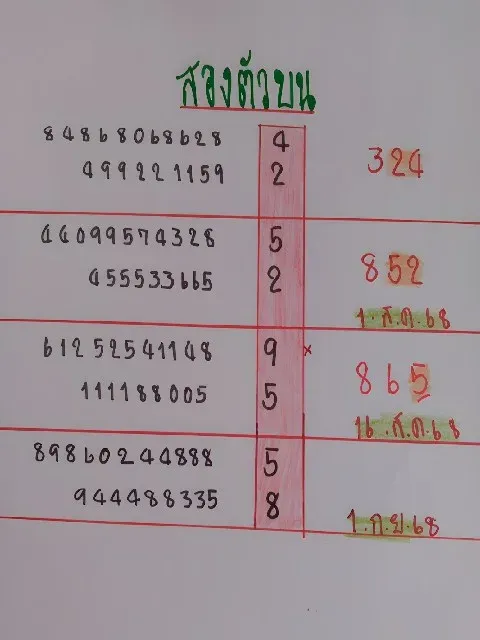 สองตัวบน
84868068628 4
499221159 2
324
44099574328 5
455533665 2
852
1.ส.ค.68
61252541148 9 ×
111188005 5
865
16.ส.ค.68
89860244888 5
944488335 8
1.ก.ย.68